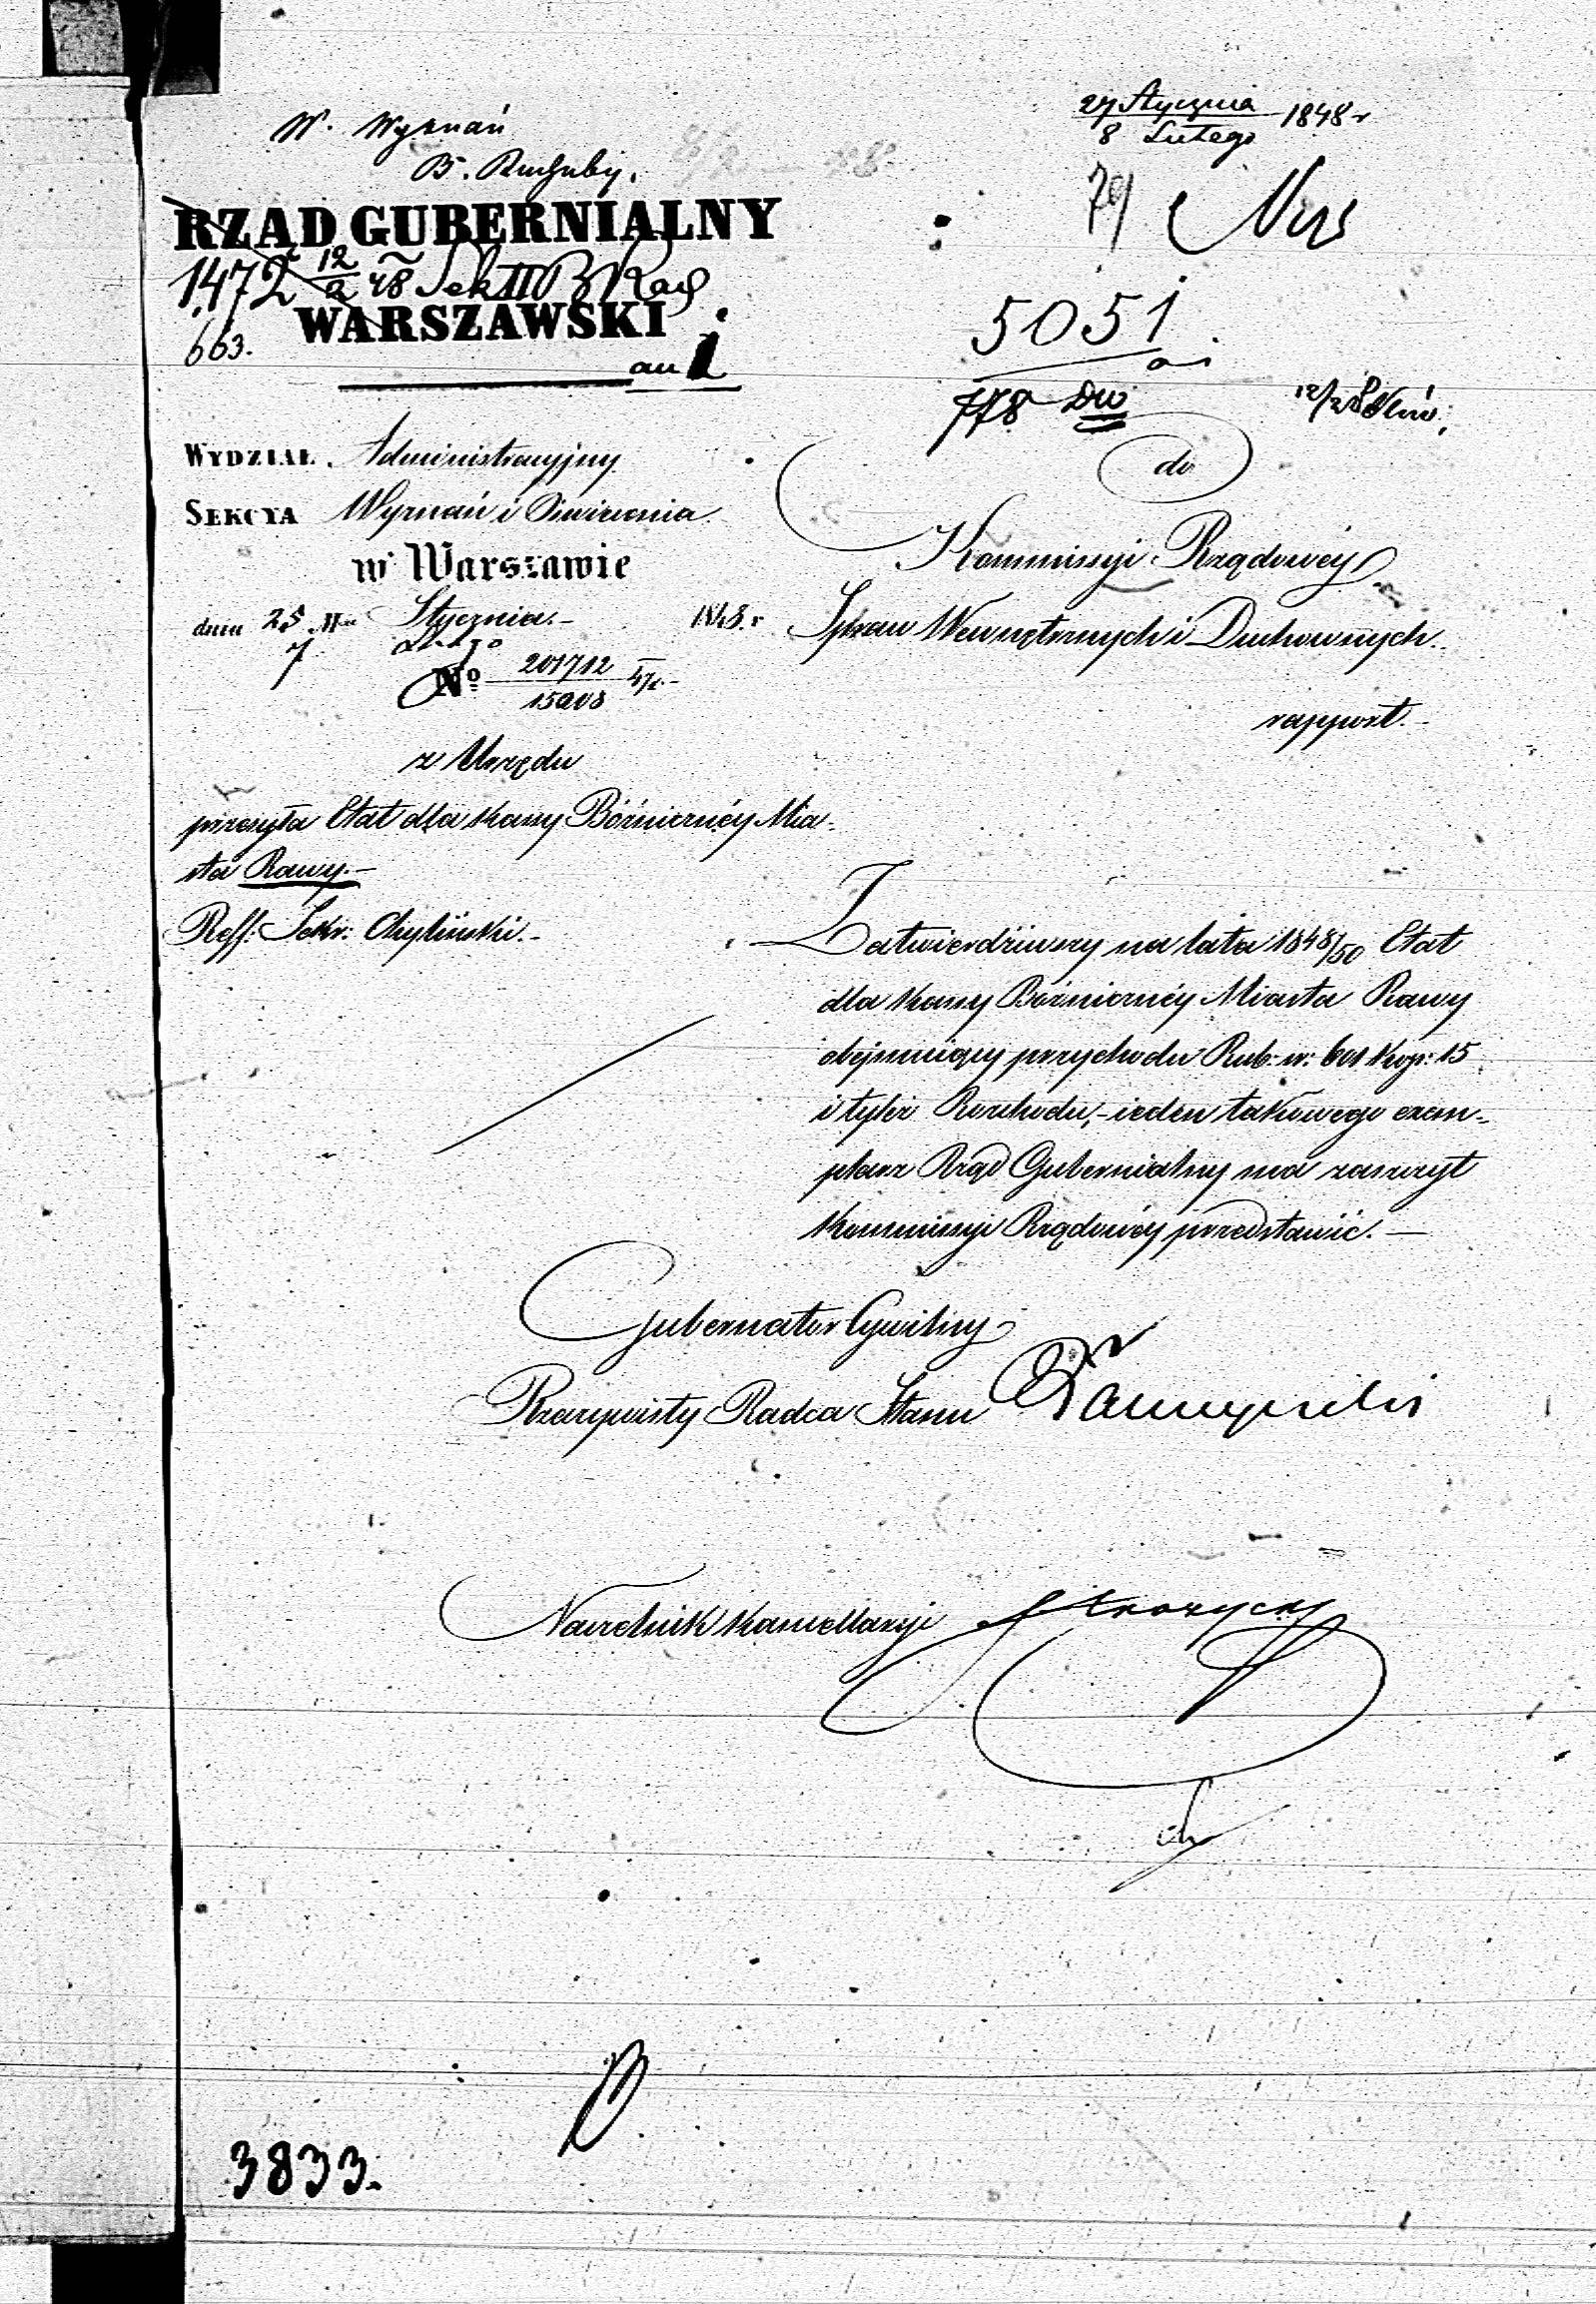 27 Stycznia
8 Lutego 1848 r
W. Wyznań
B. Rachuby.
79
RZĄD GUBERNIALNY
1472 12/2 48 Sek II B Rach
WARSZAWSKI
663.
an 1
5051
778 Dw
WYDZIAŁ. Administracyjny
SEKCYA Wyznań i Oświecenia
w Warszawie
dnia 25 M Stycznia 1848. r
7 Lutego
No 201712
z Urzędu
przesyła Etat dla kassy Bóżnicznéy Mia-
sta Rawy.-
Reff: Sekr: Chyliński.-
do
Kommissyi Rządowéy
Spraw Wewnętrznych i Duchownych.
rapport.-
Zatwierdziwszy na lata 1848/50 Etat
dla kassy Bóżnicznéy Miasta Rawy
obejmuiący przychodu Rub. sr: 601 kop: 15
i tyleż Rozchodu,- ieden takowego exem-
plarz Rząd Gubernialny ma zaszczyt
Kommissyi Rządowéy przedstawić.-
Gubernator Cywilny
Rzeczywisty Radca Stanu
Naczelnik Kancellaryi
3833.